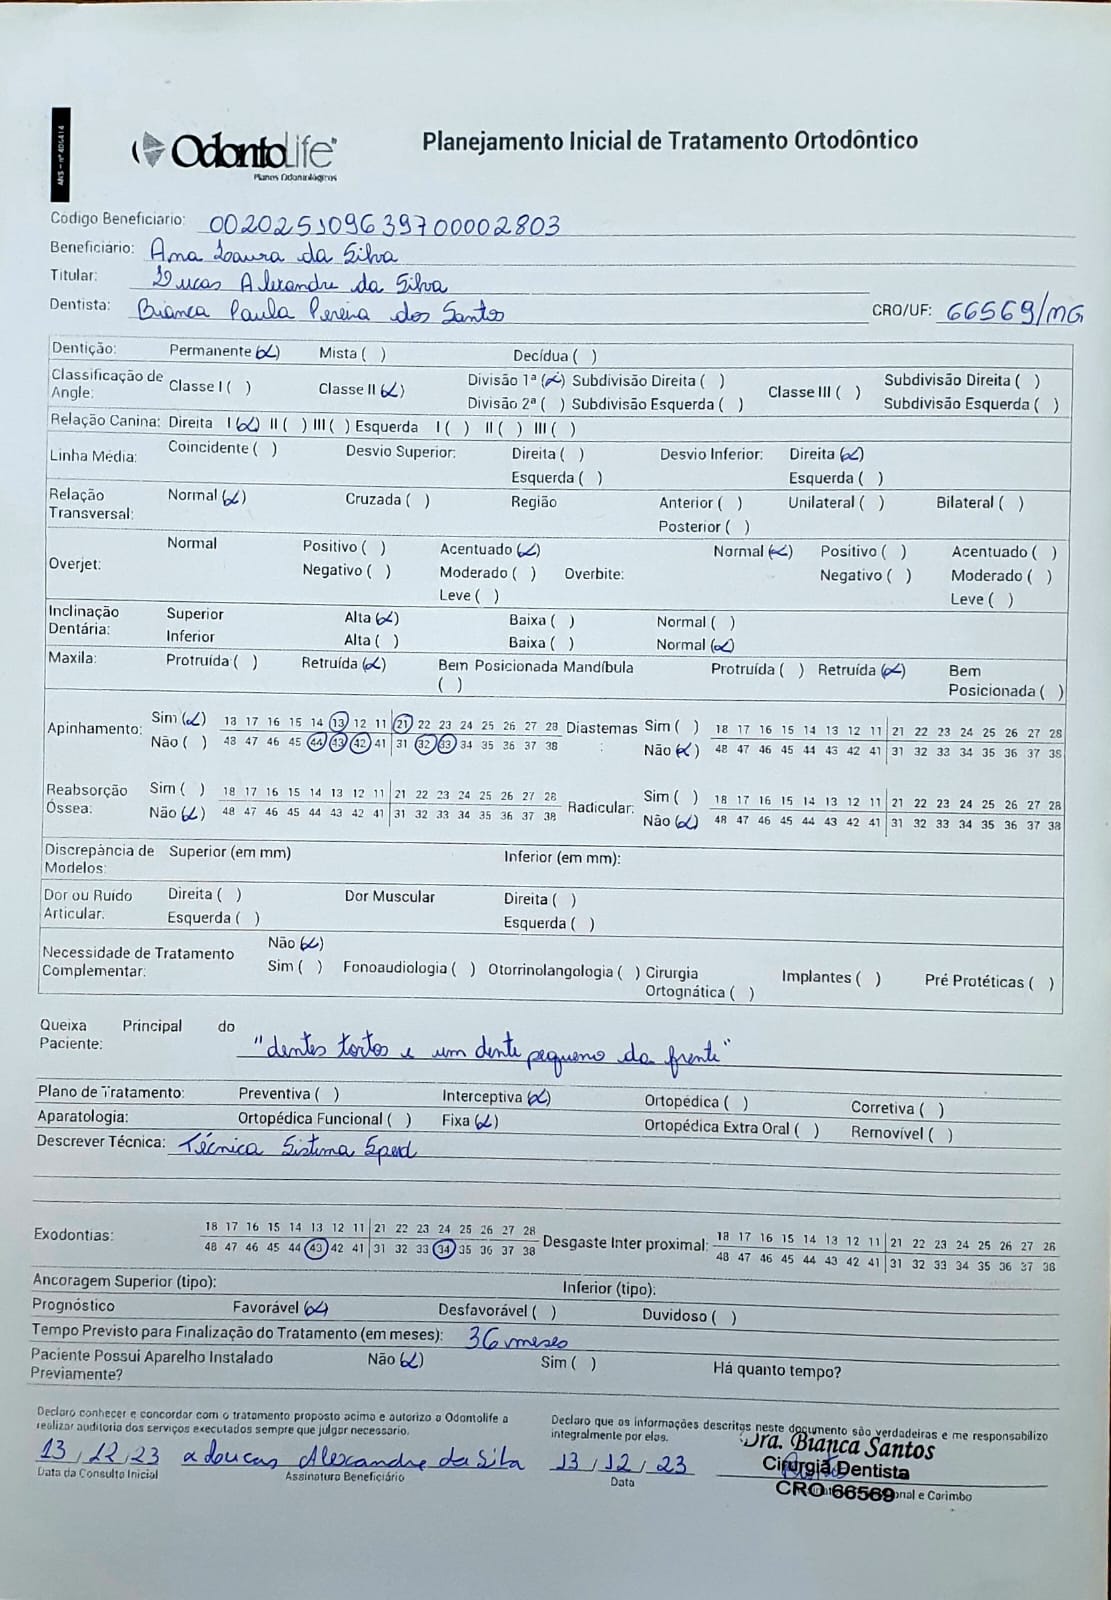 ANS - nº 406414
OdontoLife
Planos Odontológicos
Planejamento Inicial de Tratamento Ortodôntico
Código Beneficiário: 00202510963970000 2803
Beneficiário: Ana Laura da Silva
Titular: Lucas Alexandre da Silva
Dentista: Bianca Paula Pereira dos Santos CRO/UF: 66569/MG
Dentição: Permanente (x) Mista ( ) Decídua ( )
Classificação de Angle: Classe I ( ) Classe II (x) Divisão 1ª (x) Subdivisão Direita ( ) Classe III ( ) Subdivisão Direita ( )
Divisão 2ª ( ) Subdivisão Esquerda ( ) Subdivisão Esquerda ( )
Relação Canina: Direita I (x) II ( ) III ( ) Esquerda I ( ) II ( ) III ( )
Linha Média: Coincidente ( ) Desvio Superior: Direita ( ) Desvio Inferior: Direita (x)
Esquerda ( ) Esquerda ( )
Relação Transversal: Normal (x) Cruzada ( ) Região Anterior ( ) Unilateral ( ) Bilateral ( )
Posterior ( )
Overjet: Normal Positivo ( ) Acentuado (x) Overbite: Normal (x) Positivo ( ) Acentuado ( )
Negativo ( ) Moderado ( ) Negativo ( ) Moderado ( )
Leve ( ) Leve ( )
Inclinação Dentária: Superior Alta (x) Baixa ( ) Normal ( )
Inferior Alta ( ) Baixa ( ) Normal (x)
Maxila: Protruída ( ) Retruída (x) Bem Posicionada ( ) Mandíbula Protruída ( ) Retruída (x) Bem Posicionada ( )
Apinhamento: Sim (x) 18 17 16 15 14 13 12 11 21 22 23 24 25 26 27 28 Diastemas : Sim ( ) 18 17 16 15 14 13 12 11 21 22 23 24 25 26 27 28
Não ( ) 48 47 46 45 44 43 42 41 31 32 33 34 35 36 37 38 Não (x) 48 47 46 45 44 43 42 41 31 32 33 34 35 36 37 38
Reabsorção Óssea: Sim ( ) 18 17 16 15 14 13 12 11 21 22 23 24 25 26 27 28 Radicular: Sim ( ) 18 17 16 15 14 13 12 11 21 22 23 24 25 26 27 28
Não (x) 48 47 46 45 44 43 42 41 31 32 33 34 35 36 37 38 Não (x) 48 47 46 45 44 43 42 41 31 32 33 34 35 36 37 38
Discrepância de Modelos: Superior (em mm) Inferior (em mm):
Dor ou Ruído Articular: Direita ( ) Dor Muscular Direita ( )
Esquerda ( ) Esquerda ( )
Necessidade de Tratamento Complementar: Não (x)
Sim ( ) Fonoaudiologia ( ) Otorrinolangologia ( ) Cirurgia Ortognática ( ) Implantes ( ) Pré Protéticas ( )
Queixa Principal do Paciente: "dentes tortos e um dente pequeno da frente"
Plano de Tratamento: Preventiva ( ) Interceptiva (x) Ortopédica ( ) Corretiva ( )
Aparatologia: Ortopédica Funcional ( ) Fixa (x) Ortopédica Extra Oral ( ) Removível ( )
Descrever Técnica: Técnica Sistema Speed
Exodontias: 18 17 16 15 14 13 12 11 21 22 23 24 25 26 27 28 Desgaste Inter proximal: 18 17 16 15 14 13 12 11 21 22 23 24 25 26 27 28
48 47 46 45 44 43 42 41 31 32 33 34 35 36 37 38 48 47 46 45 44 43 42 41 31 32 33 34 35 36 37 38
Ancoragem Superior (tipo): Inferior (tipo):
Prognóstico Favorável (x) Desfavorável ( ) Duvidoso ( )
Tempo Previsto para Finalização do Tratamento (em meses): 36 meses
Paciente Possui Aparelho Instalado Previamente? Não (x) Sim ( ) Há quanto tempo?
Declaro conhecer e concordar com o tratamento proposto acima e autorizo a Odontolife a
realizar auditoria dos serviços executados sempre que julgar necessário.
Declaro que as informações descritas neste documento são verdadeiras e me responsabilizo
integralmente por elas.
13/12/23 x Loucas Alexandre da Silva 13/12/23
Data da Consulta Inicial Assinatura Beneficiário Data
Dra. Bianca Santos
Cirurgiã Dentista
CRO 66569
onal e Carimbo